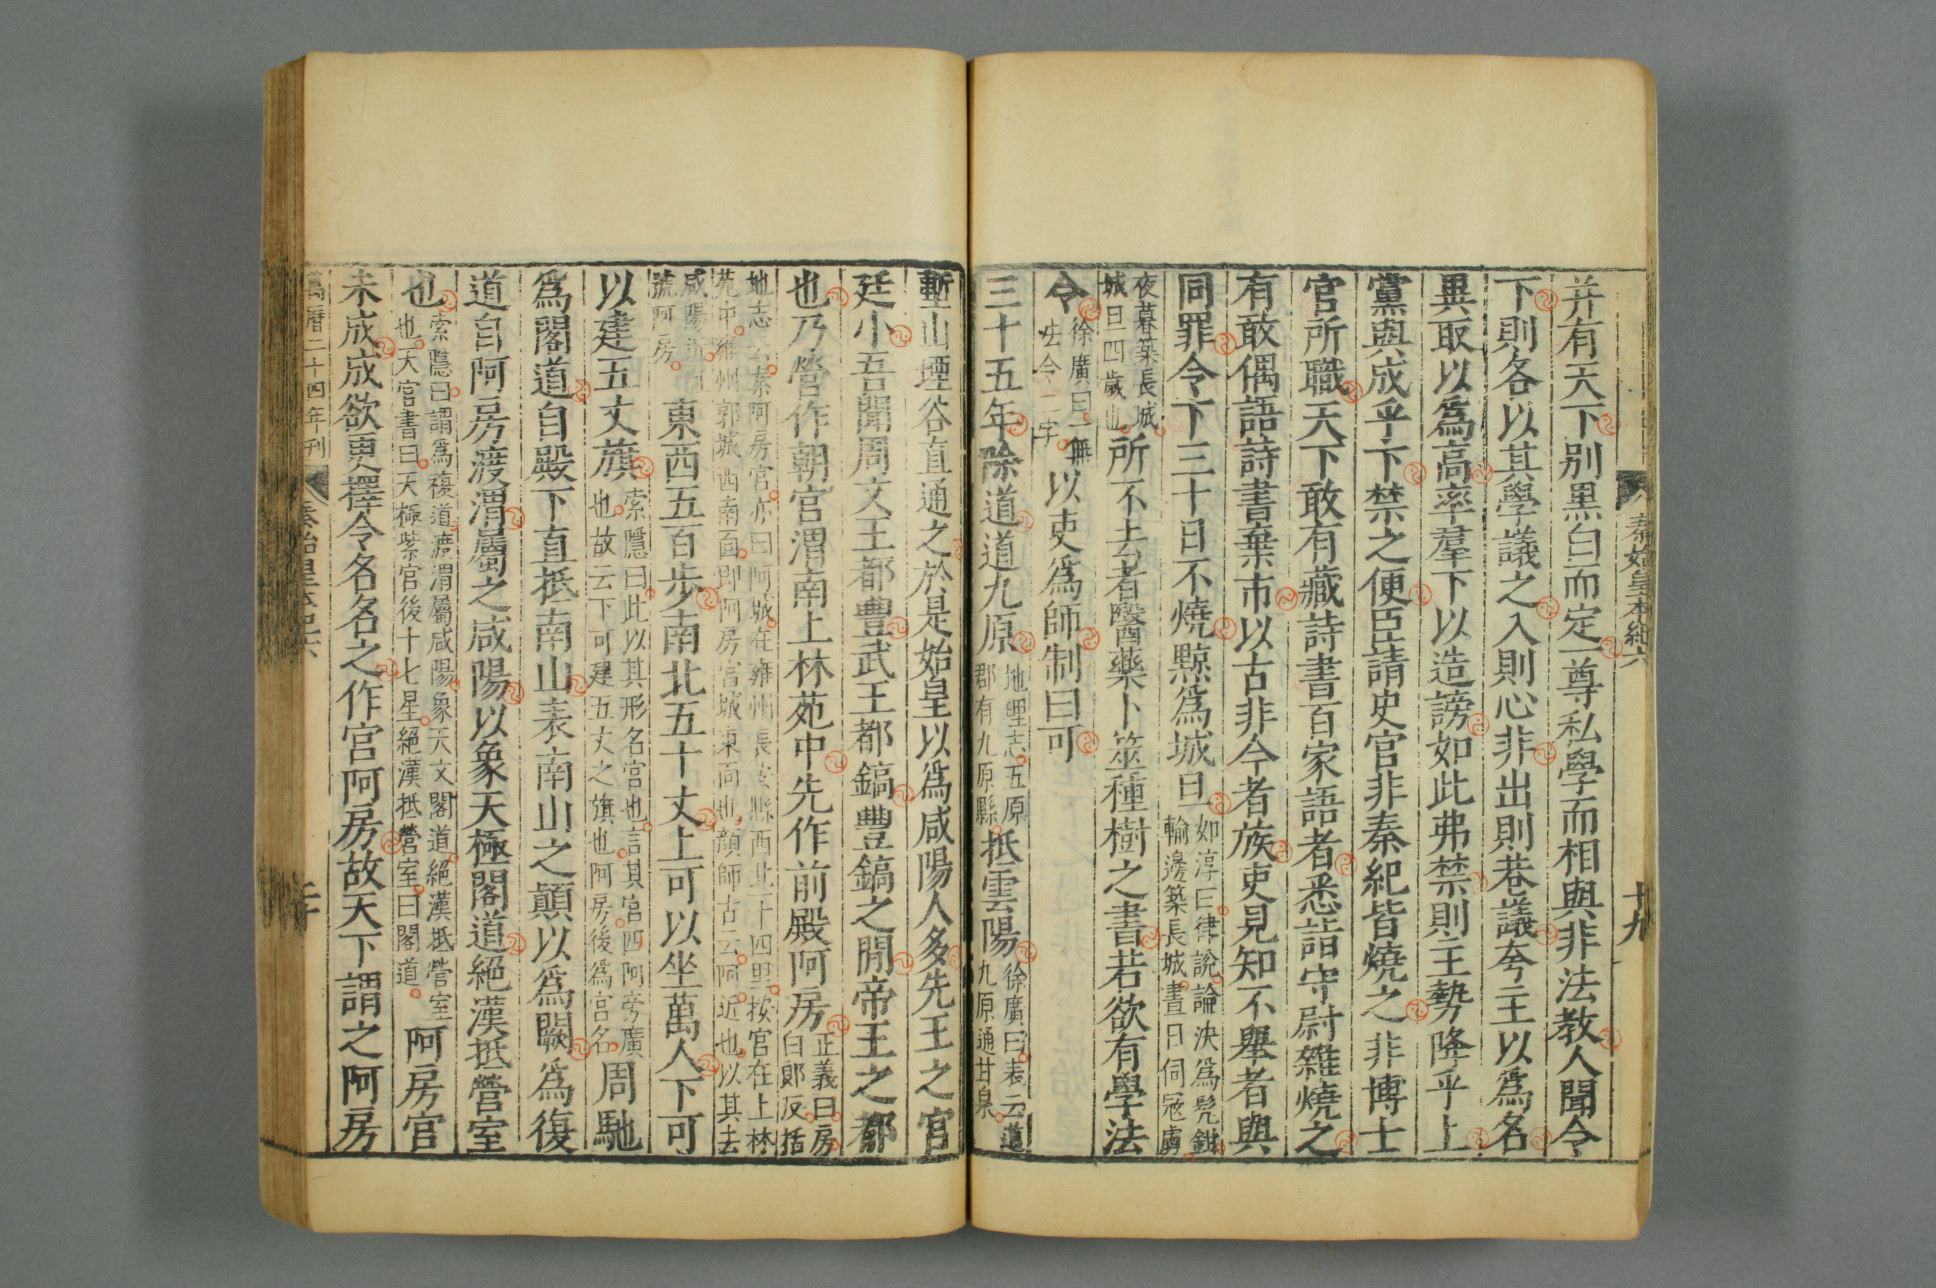 秦始皇本紀六
十九
并有天下別黑白而定一尊私學而相與非法教人聞令
下則各以其學議之入則心非出則巷議夸主以爲名
異取以爲高率羣下以造謗如此弗禁則主勢降乎上
黨與成乎下禁之便臣請史官非秦紀皆燒之非博士
官所職天下敢有藏詩書百家語者悉詣守尉雜燒之
有敢偶語詩書棄市以古非今者族吏見知不舉者與
同罪令下三十日不燒黥爲城旦如淳曰律說論決爲髡鉗輸邊築長城晝日伺寇虜
夜暮築長城城旦四歲也所不去者醫藥卜筮種樹之書若欲有學法
令徐廣曰一無法令二字以吏爲師制曰可
三十五年除道道九原地理志五原郡有九原縣抵雲陽徐廣曰表云道九原通甘泉
塹山堙谷直通之於是始皇以爲咸陽人多先王之宮
廷小吾聞周文王都豐武王都鎬豐鎬之閒帝王之都
也乃營作朝宮渭南上林苑中先作前殿阿房正義曰房白郎反括
地志云秦阿房宮亦曰阿城在雍州長安縣西北十四里按宮在上林苑中雍州郭城西南面即阿房宮城東面也顏師古云阿近也以其去
咸陽近號阿房東西五百步南北五十丈上可以坐萬人下可
以建五丈旗索隱曰此以其形名宮也言其宮四阿旁廣也故云下可建五丈之旗也阿房後爲宮名周馳
爲閣道自殿下直抵南山表南山之顚以爲闕爲復
道自阿房渡渭屬之咸陽以象天極閣道絕漢抵營室
也索隱曰謂爲複道渡渭屬咸陽象天文閣道絕漢抵營室也天官書曰天極紫宮後十七星絕漢抵營室曰閣道阿房宮
未成成欲更擇令名名之作宮阿房故天下謂之阿房
萬曆二十四年刊
秦始皇本紀六
二十